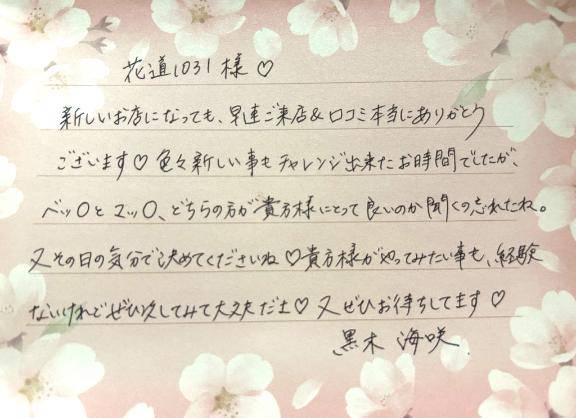 花道1031様♡
新しいお店になっても、早速ご来店&口コミ本当にありがとう
ございます♡色々新しい事もチャレンジ出来たお時間でしたが、
ベッ〇とマッ〇、どちらの方が貴方様にとって良いのか聞くの忘れたね。
又その日の気分で決めてくださいね♡貴方様がやってみたい事も、経験
ないけれどぜひ試してみて大丈夫だよ♡又ぜひお待ちしてます♡
黒木 海咲